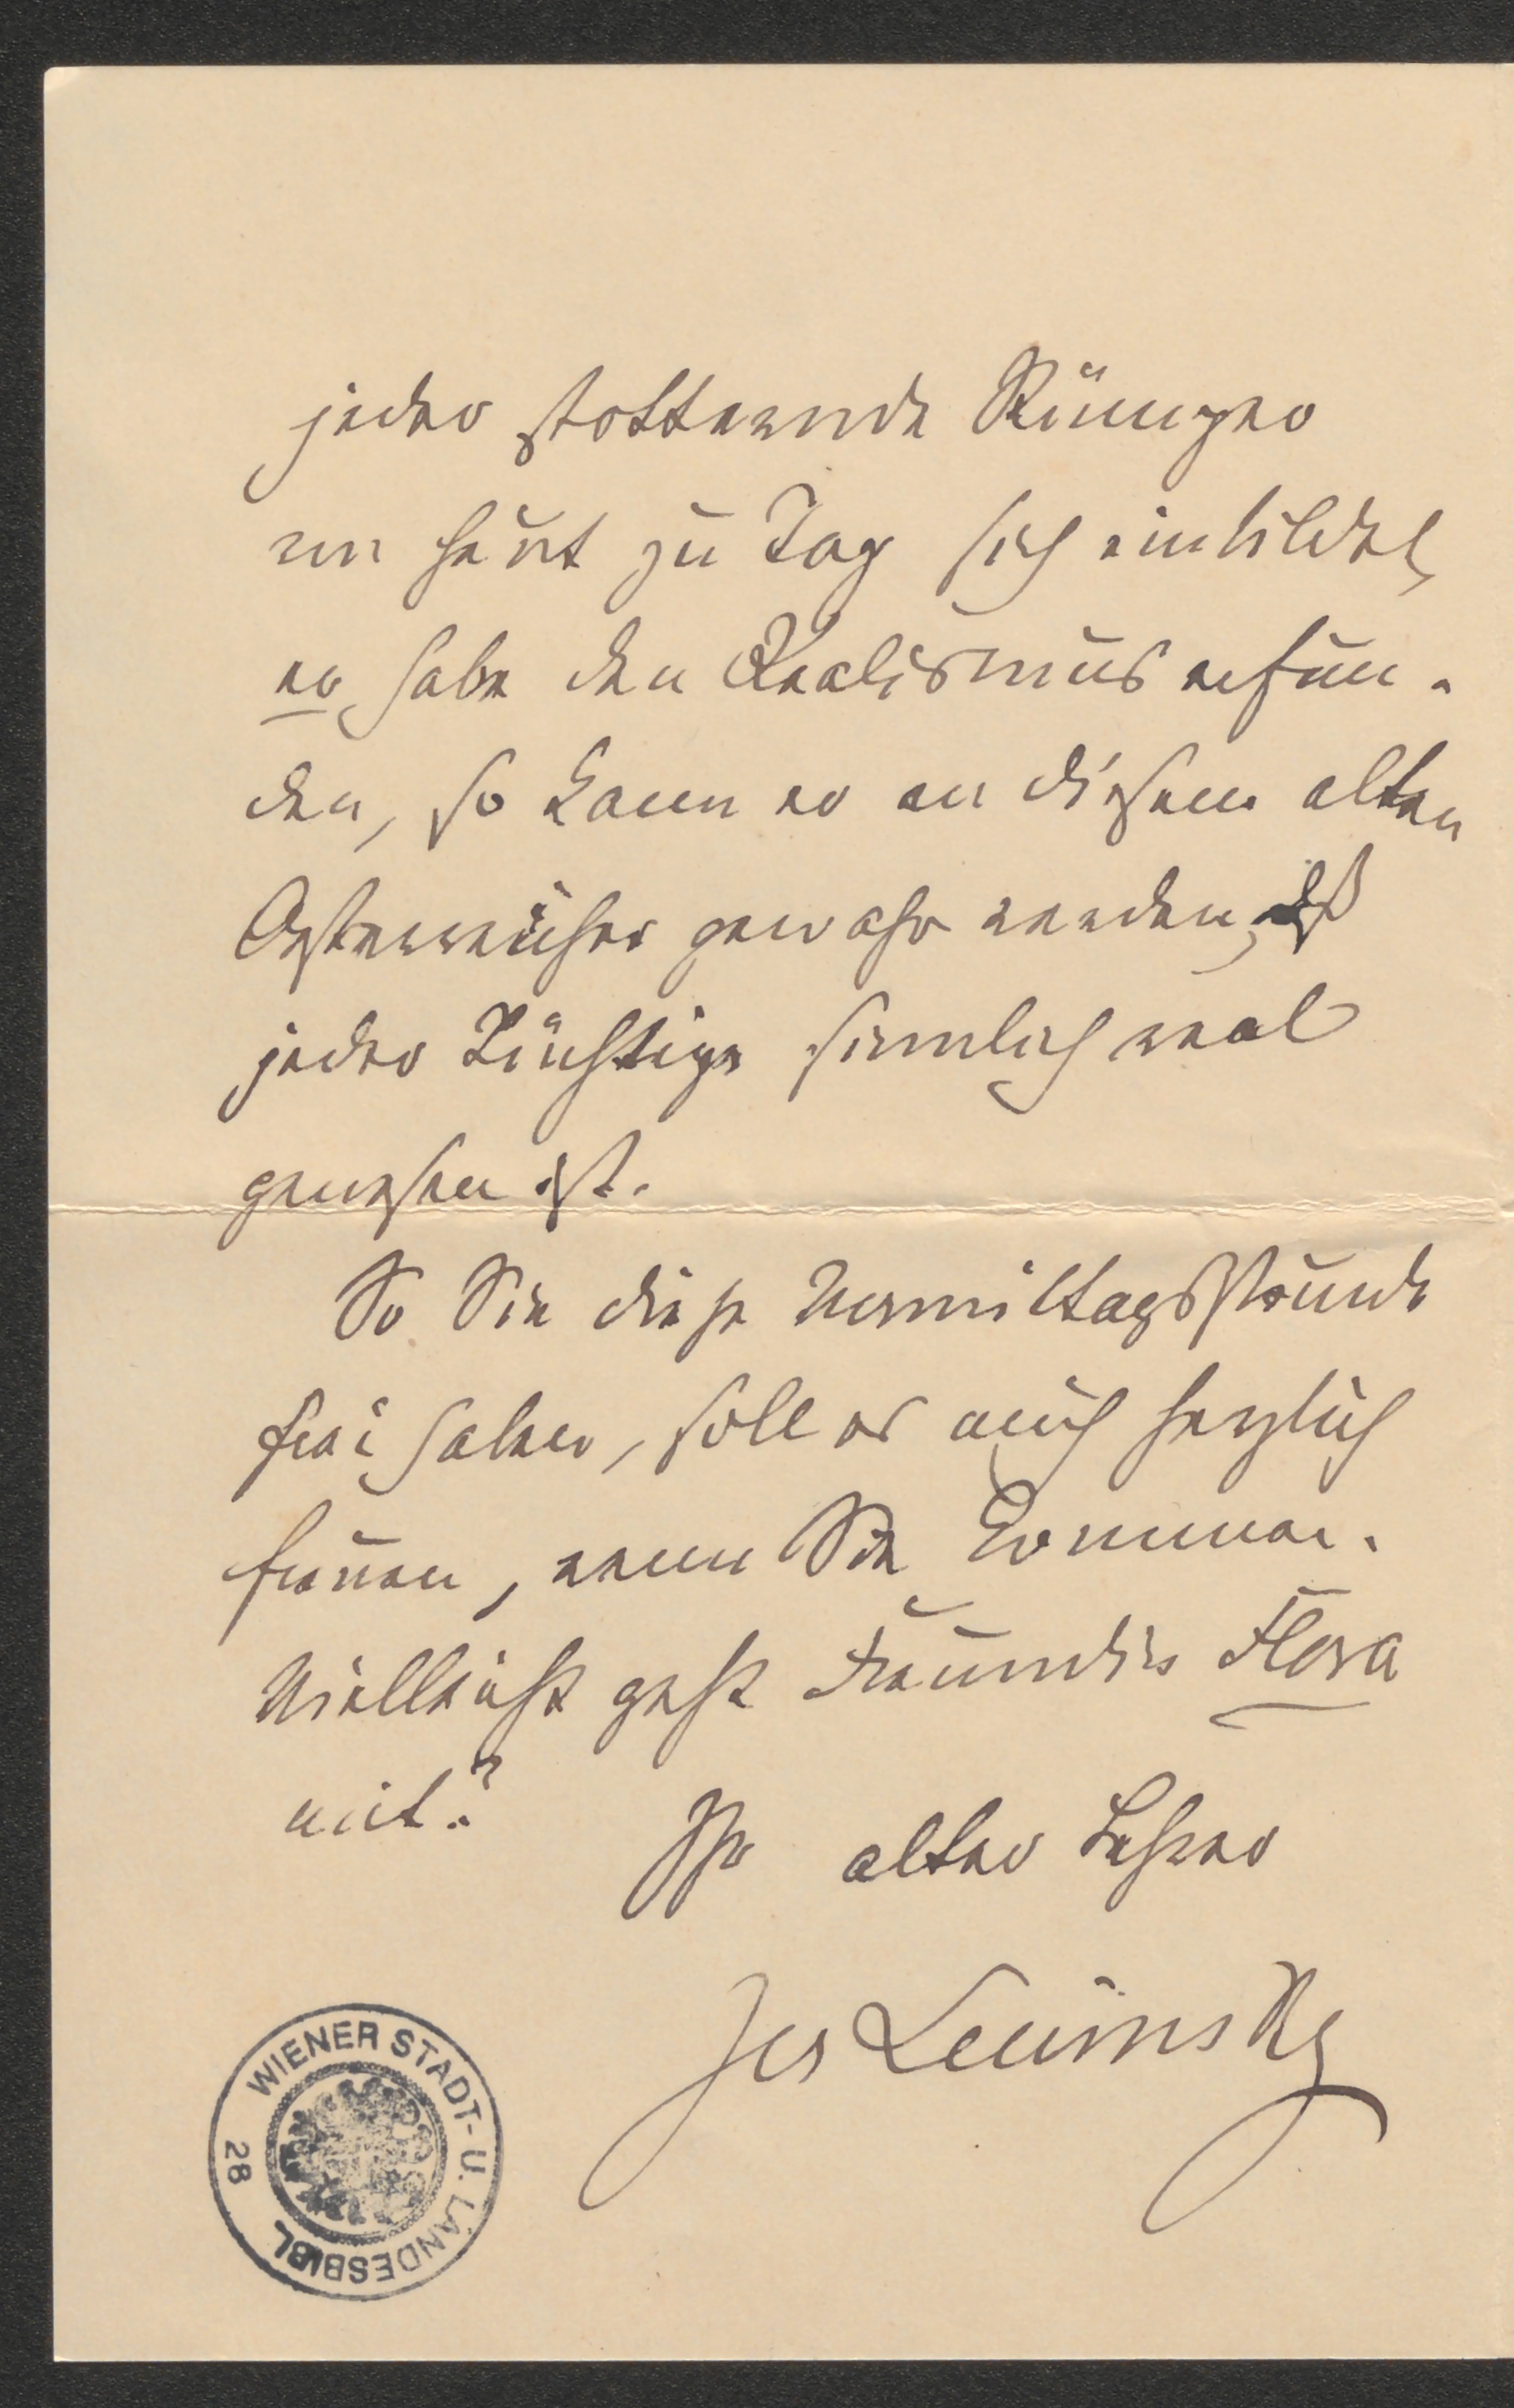 jeder stotternde Stümper
nun heut zu Tag sich einbildet,
er habe den Realismus erfun-
den, so kann er an diesem alten
Oesterreicher gewahr werden, daß
jeder Tüchtige sinnlich real
gewesen ist.
So Sie diese Vormittagsstunde
frei haben, soll es mich herzlich
freuen, wenn Sie kommen.
Vielleicht geht Freundin Flora
mit?
Ihr alter Lehrer
Jos Lewinsky
WIENER STADT- U. LANDESBIBL.
28